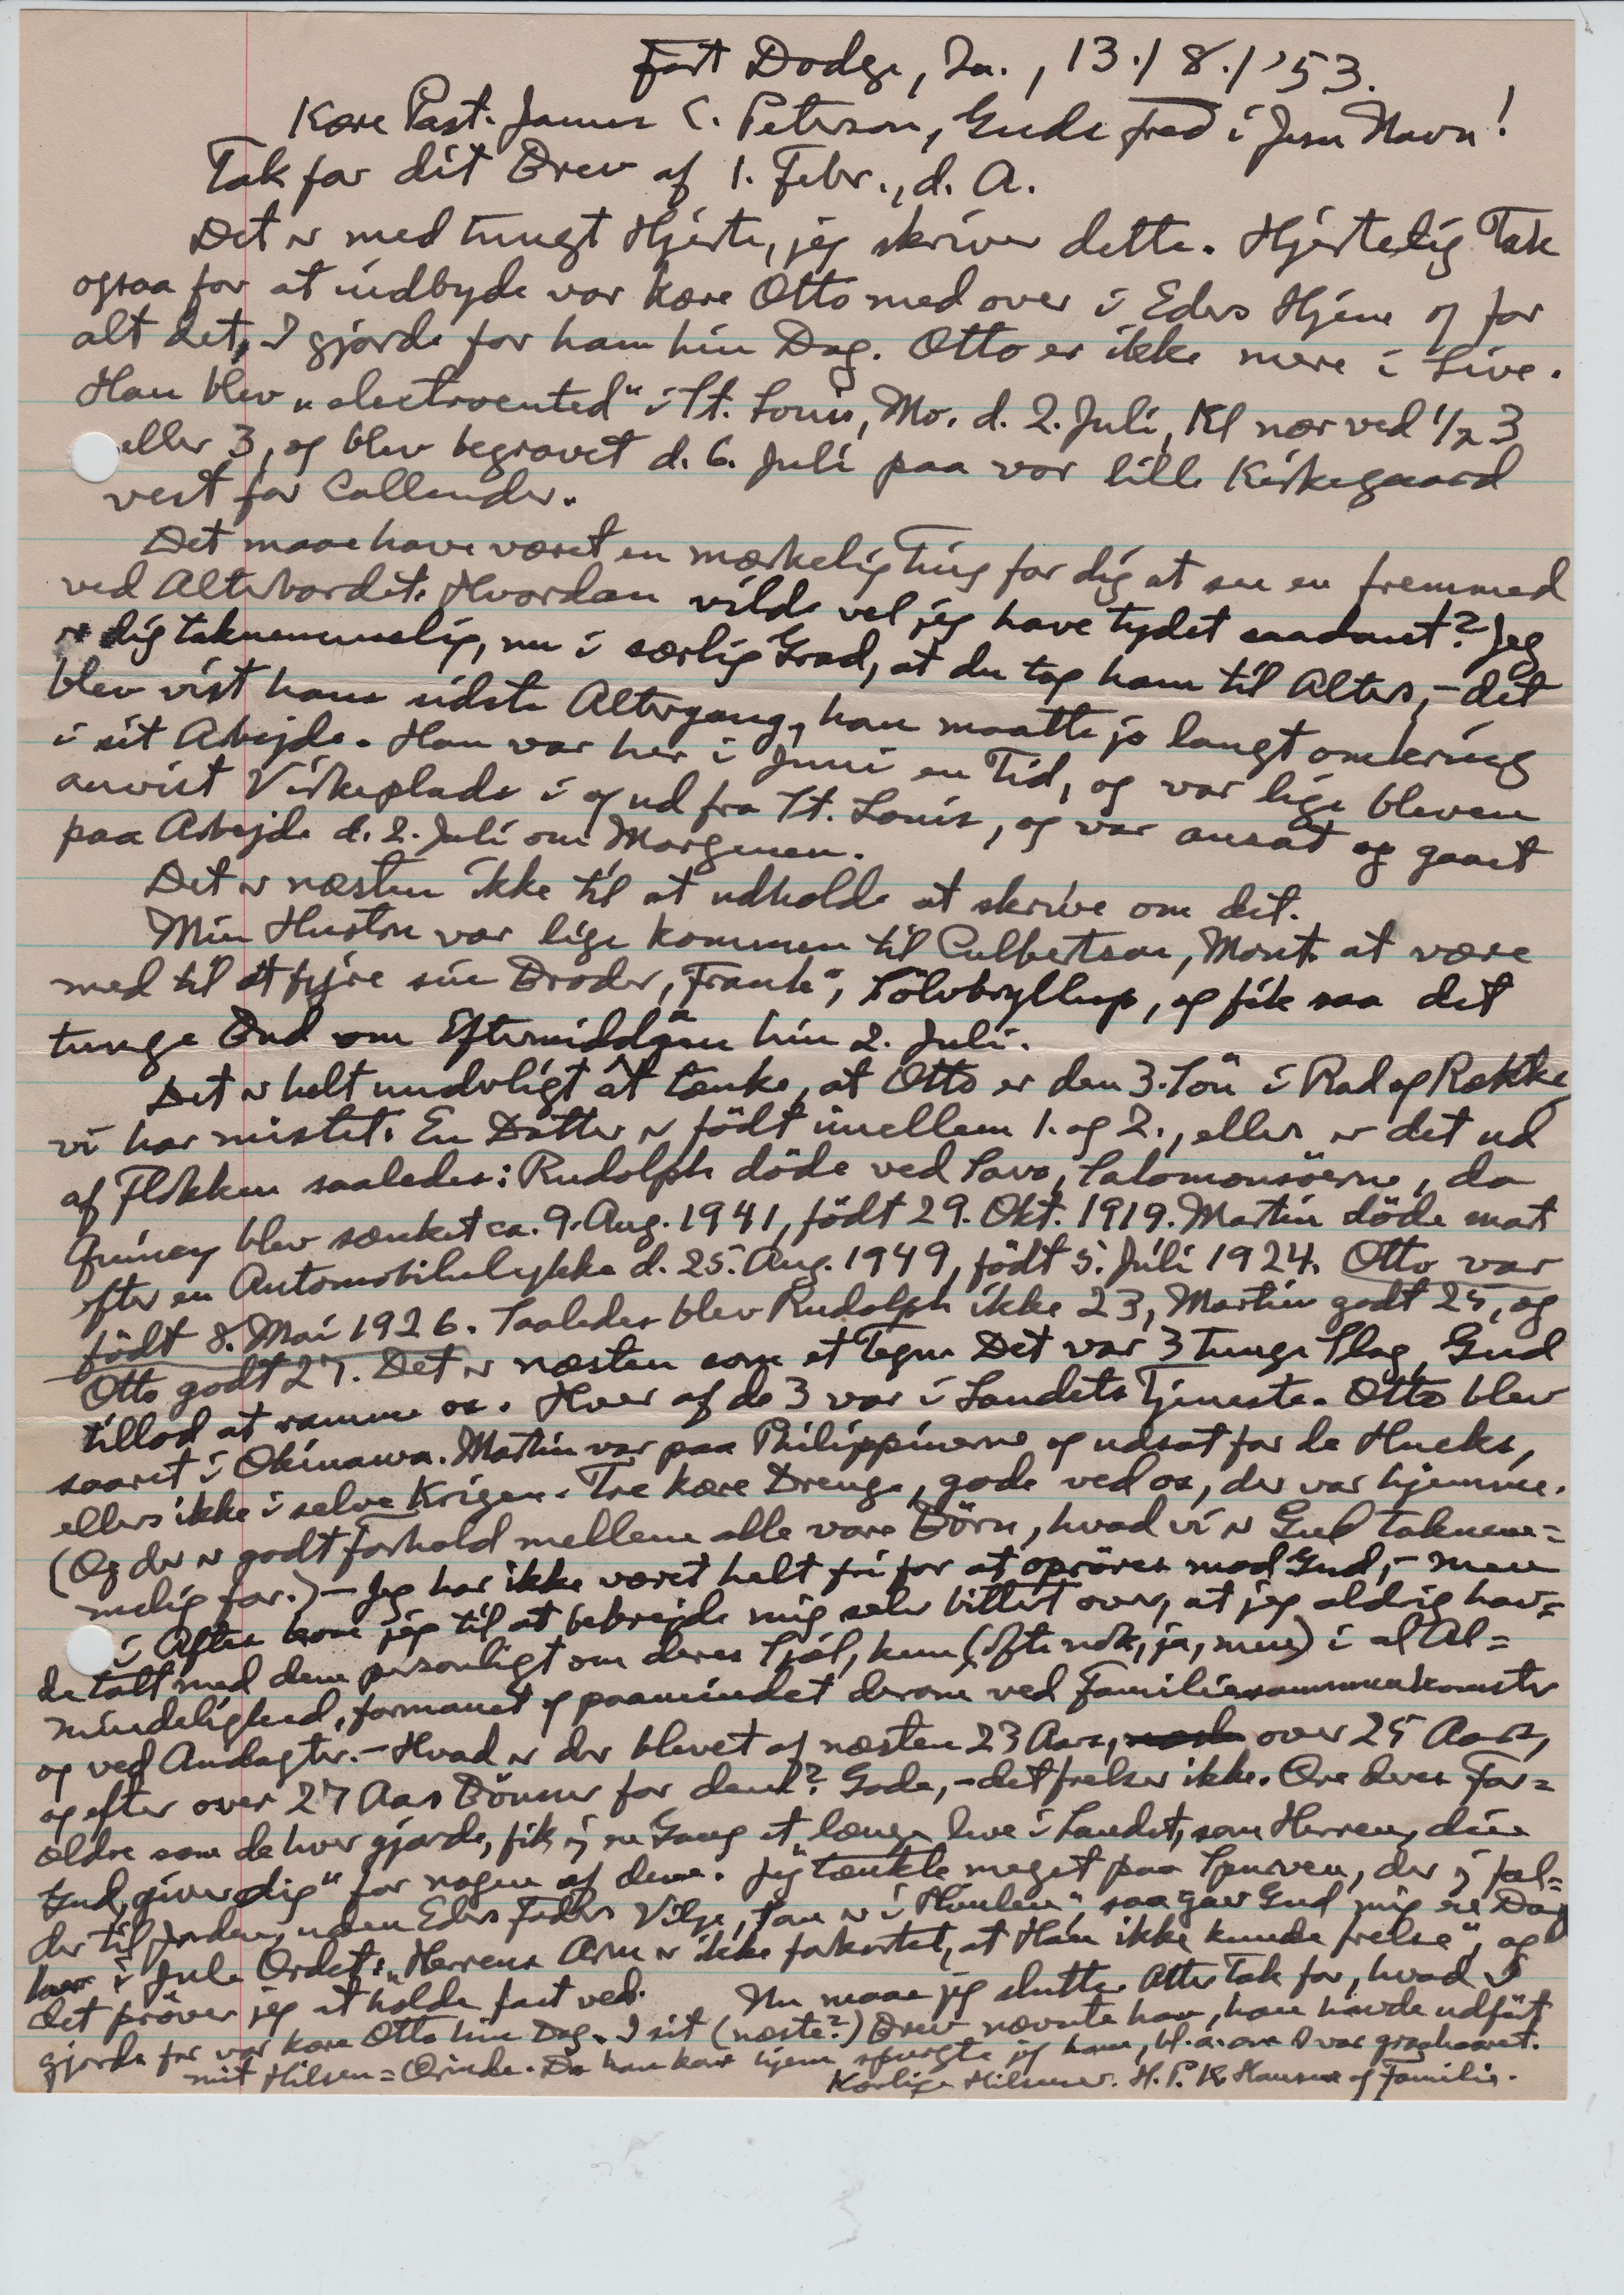 Fort Dodge, Ia., 13./8./'53.
Kære Past. James C. Peterson, Guds Fred i Jesu Navn!
Tak for dit Brev af 1. Febr., d. A.
Det er med tungt Hjerte, jeg skriver dette. Hjertelig Tak
ogsaa for at indbyde vor kære Otto med over i Eders Hjem og for
alt det, I gjorde for ham hin Dag. Otto er ikke mere i Live.
Han blev „electrocuted" i St. Louis, Mo. d. 2. Juli, Kl nær ved 1/2 3
eller 3, og blev begravet d. 6. Juli paa vor lille Kirkegaard
vest for Callender.
Det maa have været en mærkelig Ting for dig at se en fremmed
ved Alterbordet. Hvordan vilde vel jeg have tydet saadant? Jeg
er dig taknemmelig, nu i særlig Grad, at du tog ham til Alters, – det
blev vist hans sidste Altergang, han maatte jo langt omkring
i sit Arbejde. Han var her i Juni en Tid, og var lige bleven
anvist Virkeplads i og ud fra St. Louis, og var ansat og gaaet
paa Arbejde d. 2. Juli om Morgenen.
Det er næsten ikke til at udholde at skrive om det.
Min Hustru var lige kommen til Culbertson, Mont. at være
med til at fejre sin Broder, „Frank", Sölvbryllup, og fik saa det
tunge Bud om Eftermiddagen hin 2. Juli.
Det er helt underligt at tænke, at Otto er den 3. Sön i Rad og Række
vi har mistet. En Datter er födt imellem 1. og 2., ellers er det ud
af Flokken saaledes: Rudolph döde ved Savo, Salomonsöerne, da
Quincy blev sænket ca. 9. Aug. 1941, födt 29. Okt. 1919. Martin döde mat
efter en Automobilulykke d. 25. Aug. 1949, födt 5. Juli 1924. Otto var
födt 8. Mai 1926. Saaledes blev Rudolph ikke 23, Martin godt 25, og
Otto godt 27. Det er næsten som et Tegn Det var 3 tunge Slag, Gud
tillod at ramme os. Hver af de 3 var i Landets Tjeneste. Otto blev
saaret i Okinawa. Martin var paa Philippinerne og udsat for de Hucks,
ellers ikke i selve Krigen. Tre kære Drenge, gode ved os, der var hjemme.
(Og der er godt Forhold mellem alle vore Börn, hvad vi er Gud taknem=
melig for.) – Jeg har ikke været helt fri for at opröres mod Gud, – men
i Aften kom jeg til at bebrejde mig selv bittert over, at jeg aldrig hav=
de talt med dem personligt om deres Sjæl, kun (ofte nok, ja, men) i al Al=
mindelighed, formanet og paamindet derom ved Familiesammenkomster
og ved Andagter. – Hvad er der blevet af næsten 23 Aars, over 25 Aars,
og efter over 27 Aars Bönner for dem? Gode, – det frelser ikke. Ære deres For=
ældre som de hver gjorde, fik ej en Gang et „længe leve i Landet, som Herren, din
Gud, giver dig" for nogen af dem. Jeg tænkte meget paa Spurven, der ej fal=
der til Jorden „uden Eders Faders Vilje, som er i Himlen", saa gav Gud mig en Dag
her i Jule Ordet: „Herrens Arm er ikke forkortet, at Han ikke kunde frelse", og
det pröver jeg at holde fast ved. Nu maa jeg slutte. Atter Tak for, hvad I
gjorde for vor kære Otto hin Dag. I sit (næste?) Brev nævnte han, han havde udfört
mit Hilsen=Ærinde. Da han kom hjem spurgte jeg ham, bl. a. om I var graahaaret.
Kærlige Hilsener. H. P. K. Hansen og Familie.